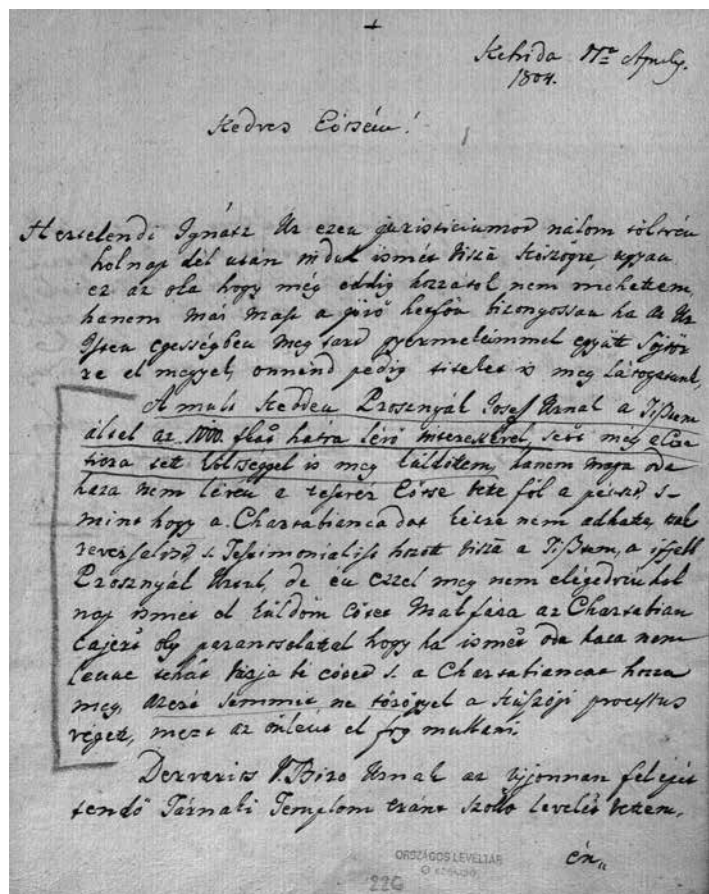 Kehida 17a Aprily.
1804.
Kedves Eötsém!
Hertelendi Ignátz Úr ezen juristiciumod nálom töltvén
holnap dél után indul ismét viszá Kőszögre, ugyan
ez az oka hogy még eddig hozzátok nem mehettem,
hanem már majt a jövő hetfön bizonyossan ha az Úr
Isten egességben meg tard gyermekeimmel együtt Söjtör
re el megyek, onnénd pedig titeket is meg látogatunk,
A mult Kedden Prosznyák Josef Urnak a Tisztem
által az 1000. flaó hátra lévő interessével, sött még
tett költséggel is meg küldöttem, hanem maga oda
haza nem lévén a testvér Eötse vette föl a pénzt, s
mint hogy a Chartabiancadat kézre nem adhatta, tsak
reversalist, s Testimonialist hozott viszá a Tisztem, a iffiabb
Prosznyák Urtul, de én ezzel meg nem elégedvén hol
nap ismét el küldöm ötet Malfára az Chartabian
cajért oly parantsolattal hogy ha ismét oda haza nem
lenne tehát várja bé öted s. a Chartabiancat hozza
meg, azért semmit ne törőgyel a Kűszögi processus
végett, mert az önként el fog mullani.
Dervarits V. Biro Urnak az ujjonnan fel épít
tendő Tárnaki Templom eránt szolló levelét vettem,
én,,
ORSZÁGOS LEVÉLTÁR
226